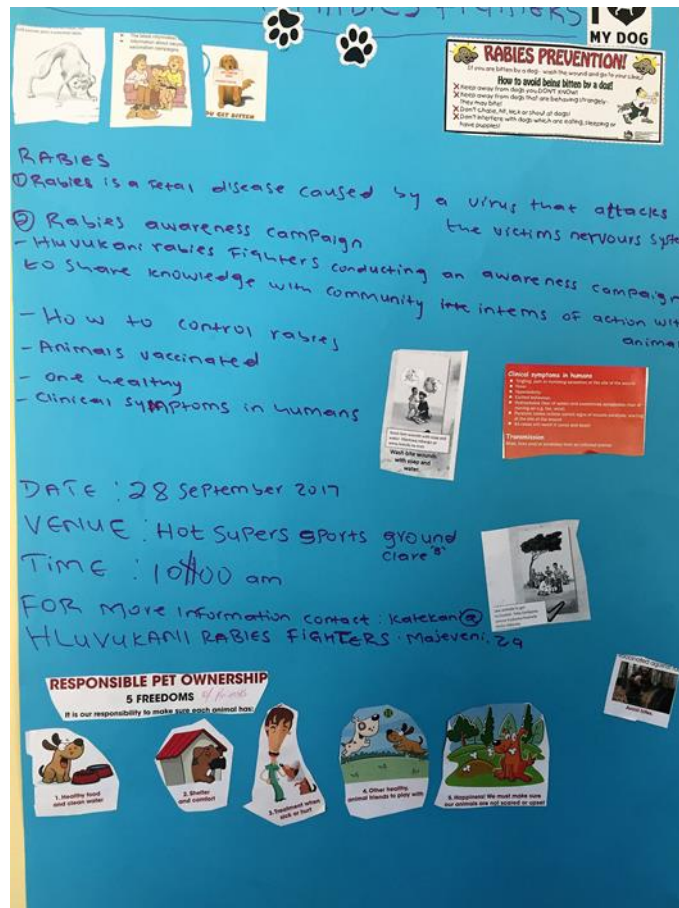 RABIES FIGHTERS
I
MY DOG
vaccination campaigns
YOU GET BITTEN
RABIES PREVENTION!
If you are bitten by a dog - wash the wound and go to your clinic!
How to avoid being bitten by a dog!
X Keep away from dogs you DON'T KNOW!
X Keep away from dogs that are behaving strangely-
they may bite!
X Don't chase, hit, kick or shout at dogs!
X Don't interfere with dogs which are eating, sleeping or
have puppies!
RABIES
① Rabies is a fetal disease caused by a virus that attacks
the victims nervours syste
② Rabies awareness campaign
- Hluvukani rabies Fighters conducting an awareness campaign
to share knowledge with community interms of action wit
animal
- How to control rabies
- Animals vaccinated
- one healthy
- Clinical symptoms in humans
Clinical symptoms in humans
Transmission
Wash bite wounds
with soap and
water.
DATE : 28 September 2017
VENUE : Hot Supers sports ground
clare "B"
Time : 10H00 am
FOR more information contact : Katekani@
HLUVUKANII RABIES FIGHTERS. Majeveni.za
Avoid bites.
RESPONSIBLE PET OWNERSHIP
5 FREEDOMS
It is our responsibility to make sure each animal has:
1. Healthy food
and clean water
2. Shelter
and comfort
3. Treatment when
sick or hurt
4. Other healthy
animal friends to play with
5. Happiness! We must make sure
our animals are not scared or upset